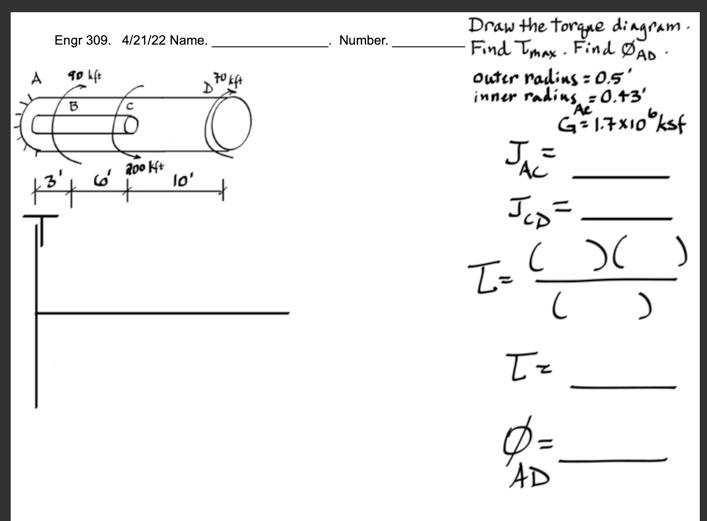 Engr 309. 4/21/22 Name. ________________. Number. __________
Draw the torque diagram.
Find τmax. Find ØAD.
outer radius = 0.5'
inner radius AC = 0.43'
G = 1.7x10^6 ksf
A 90 kft D 70 kft
B C
200 kft
3' 6' 10'
T
J AC = ____
J CD = ____
τ = ( )( )
( )
τ = ____
Ø AD = ____